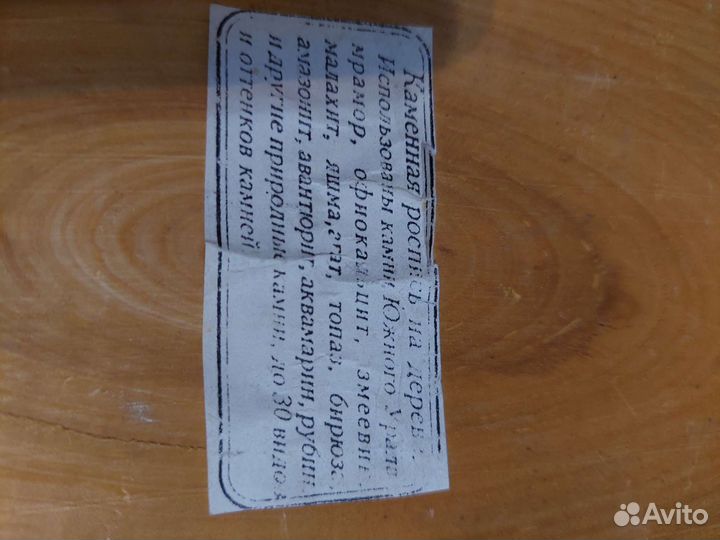 Каменная роспись на дереве.
Использованы камни Южного Урала
мрамор, офиокальцит, змеевик,
малахит, яшма, агат, топаз, бирюза,
амазонит, авантюрит, аквамарин, рубин
и другие природные камни, до 30 видов
и оттенков камней
Avito